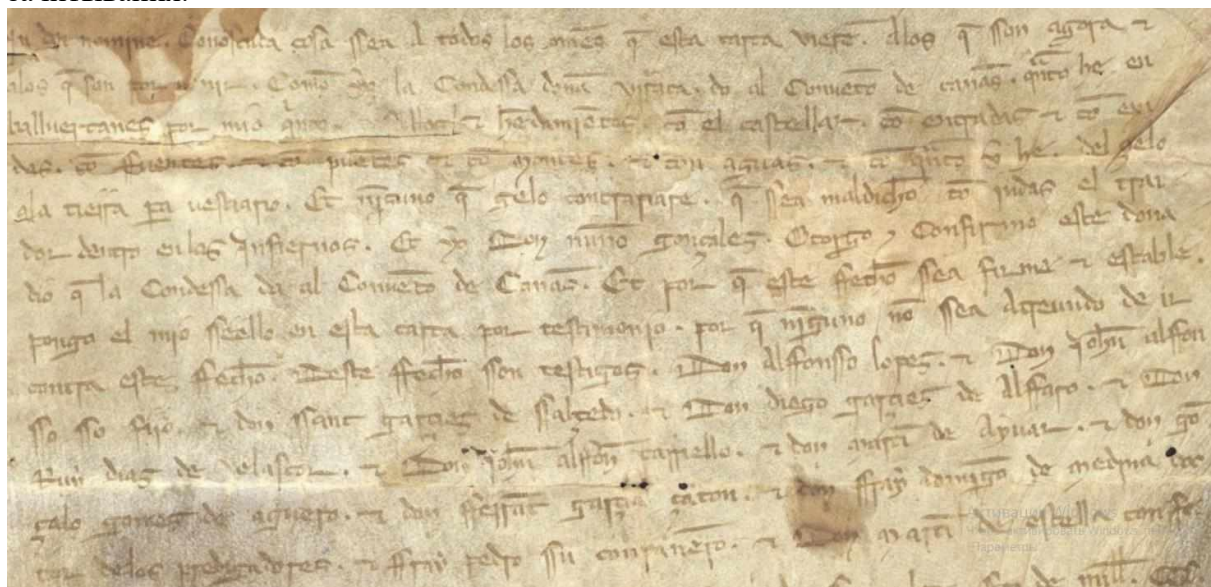 dei nomine. Conosçuda cosa ssea A todos los om̃es q̃ esta carta uierẽ. Alos q̃ sson agora ⁊
alos q̃ son por uenir. Como yo la Condessa donna do al Conuẽto de cañas. q̃nto he en
por mio q̃nto. ⁊ hedamiẽtos cõ el castellar. cõ entradas ⁊ cõ exi
das. cõ fuentes. ⁊ cõ puẽtes ⁊ cõ montes. ⁊ con aguas. ⁊ cõ q̃nto yo he. del çielo
ela tierra pa uestiario. Et nĩguno q̃ gelo contrariare. q̃ sea maldicho cõ judas el tray
dor dentro enlos Jnfiernos. Et yo Don nunno gonçales. Otorgo y Confirmo este dona
dio q̃ la Condessa da al Conuẽto de Cañas. Et por q̃ este fecho ssea firme ⁊ estable.
pongo el mio sseello en esta carta por testimonio. por q̃ nĩguno nõ ssea Atreuudo de ir
contra este ffecho. Deste ffecho sson testigos. Don Alffonsso lopes. ⁊ Don Johñ alffon
sso so fijo. ⁊ don ssant garcies de ssalzedo. ⁊ Don diego garcies de Alffaro. ⁊ Don
Ruy dias de uelasco. ⁊ Don Johñ alffoñ carriello. ⁊ don martĩ de Ayuar. ⁊ don gõ
çalo gomes de aguero. ⁊ don fferrãt garçia çaton. ⁊ don ffray domĩgo de medina
tor delos predigadores. ⁊ ffray pedro ssu conpañero. ⁊ Don martĩ de estella conffe
Активация Windows